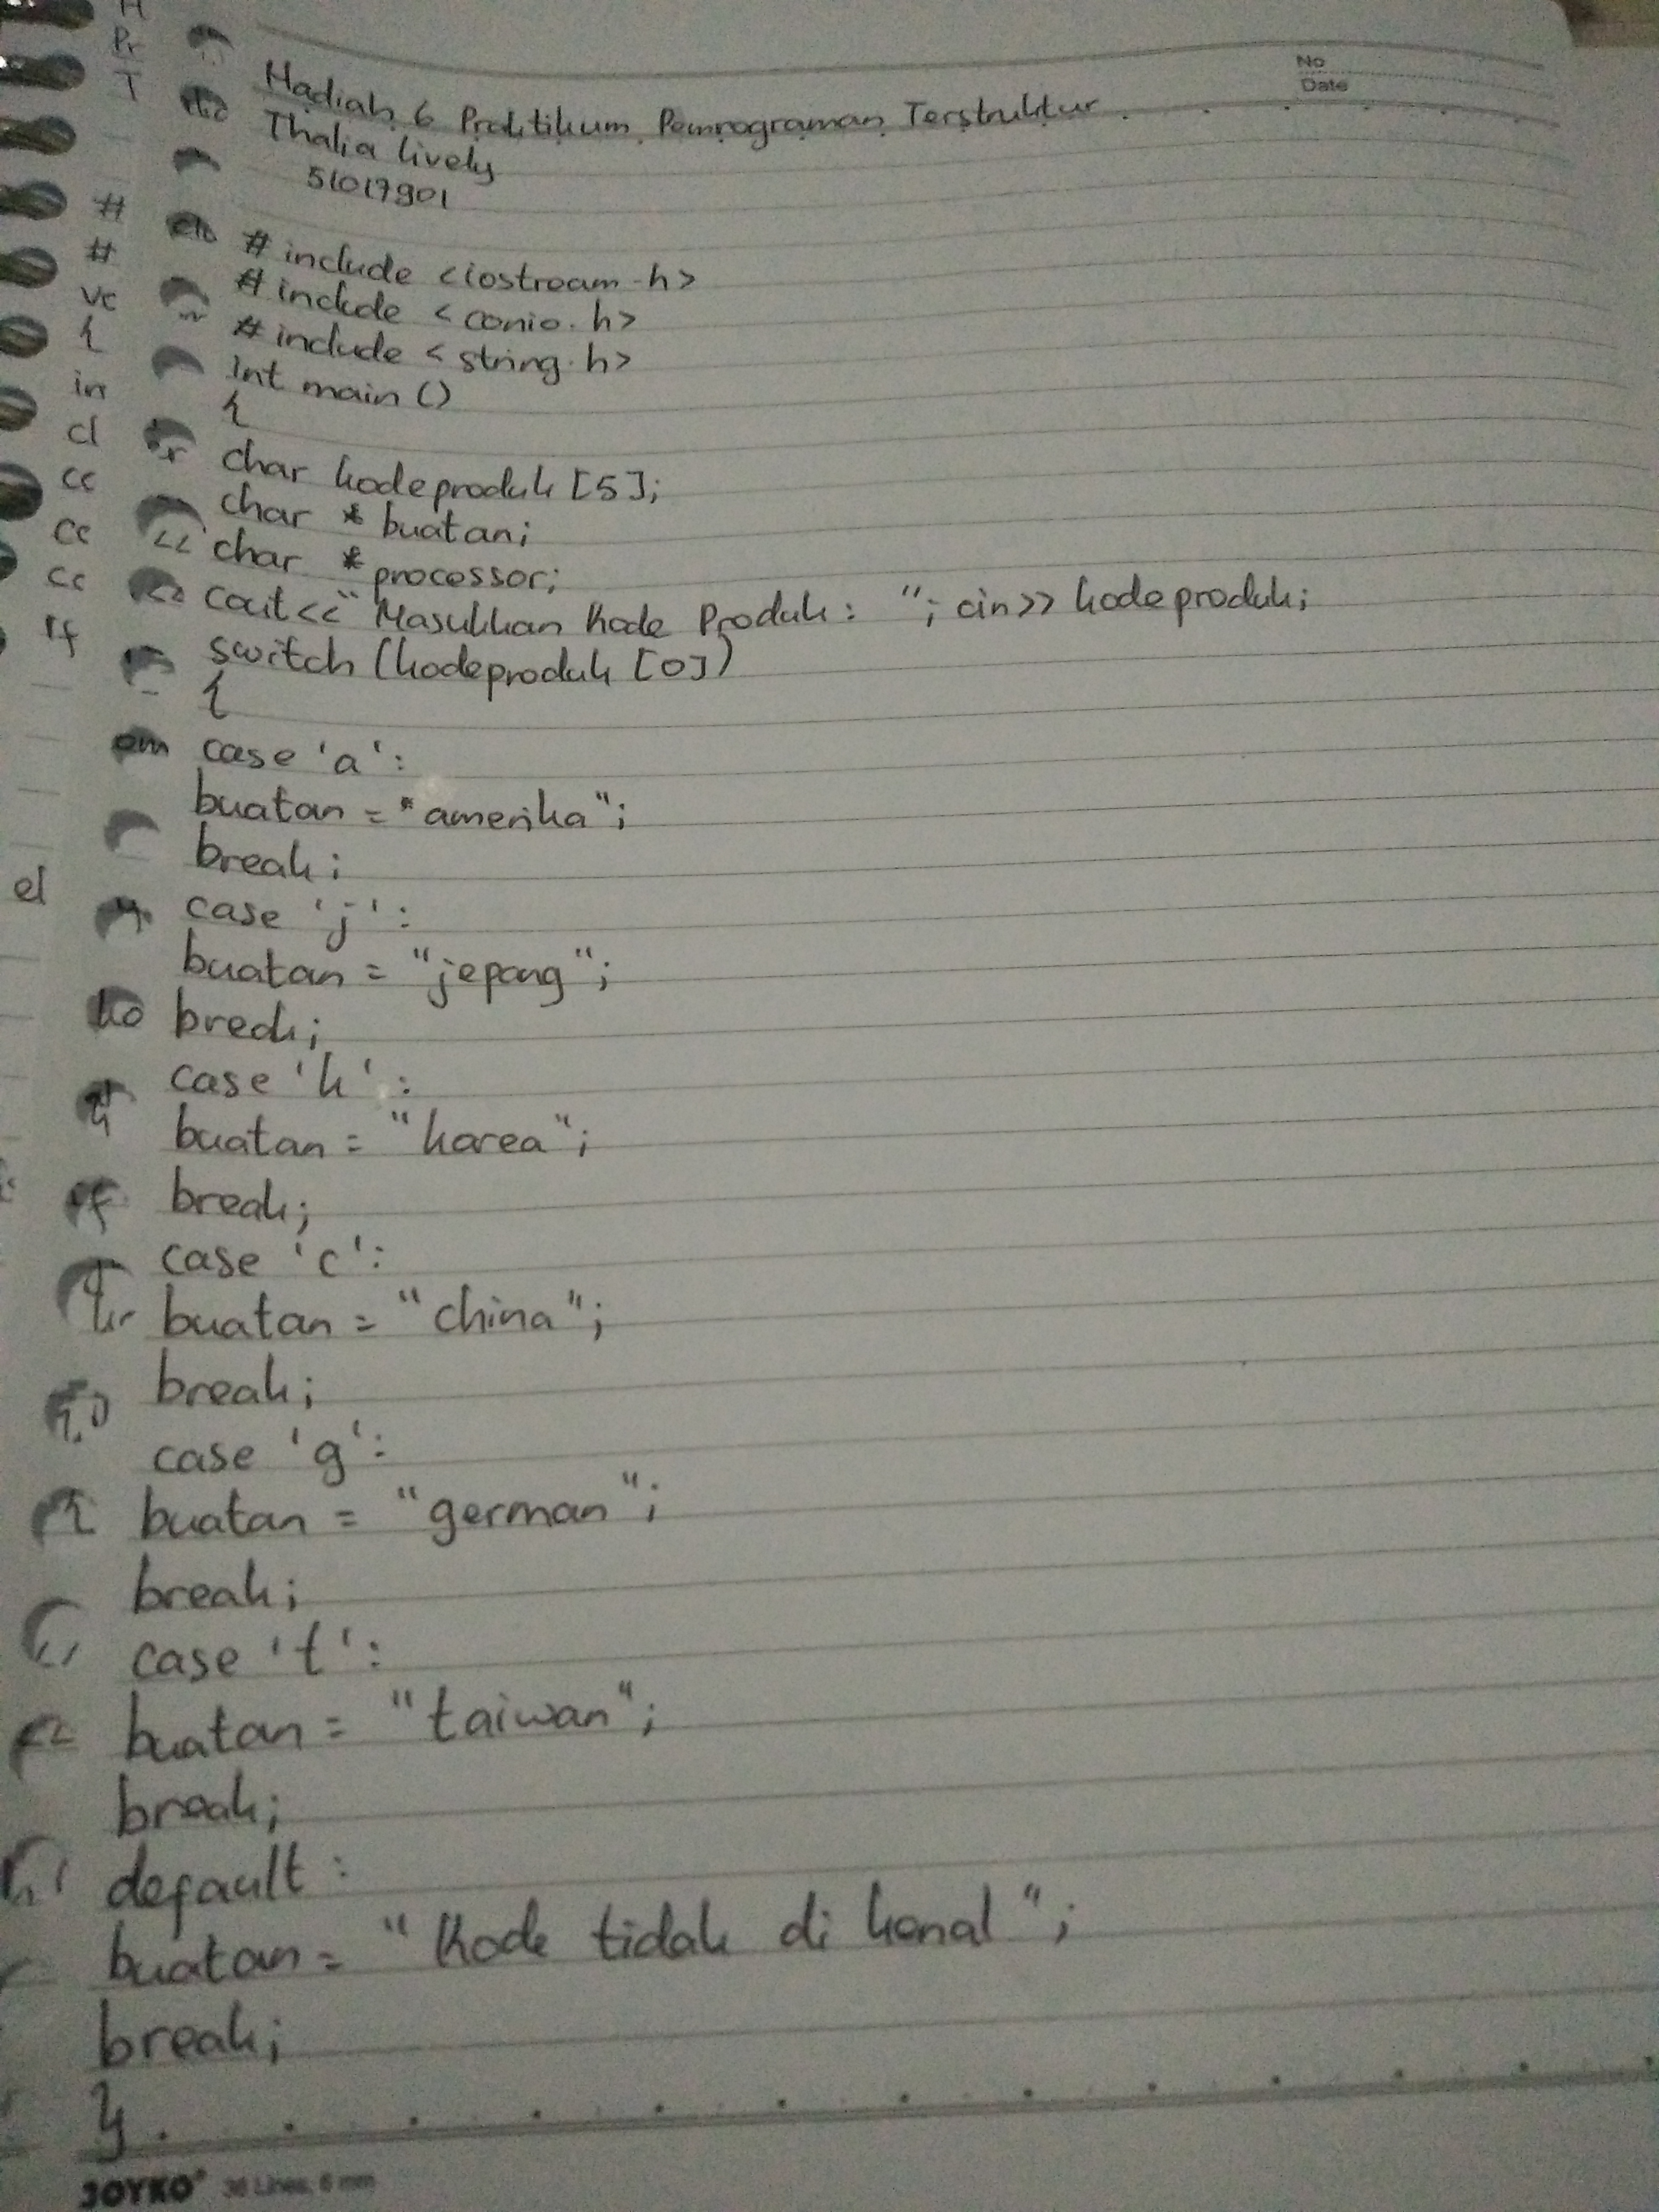 No
Date
Hadiah 6 Praktikum Pemrograman Terstruktur
Thalia lively
51017901
#include <iostream.h>
#include <conio.h>
#include <string.h>
int main ()
{
char kodeproduk [5];
char * buatan;
char * processor;
cout<<"Masukkan Kode Produk: "; cin>> kodeproduk;
switch (kodeproduk [0])
{
case 'a':
buatan = "amerika";
break;
case 'j':
buatan = "jepang";
break;
case 'k':
buatan = "korea";
break;
case 'c':
buatan = "china";
break;
case 'g':
buatan = "german";
break;
case 't':
buatan = "taiwan";
break;
default:
buatan = "Kode tidak di kenal";
break;
}
JOYKO 36 Lines, 6 mm